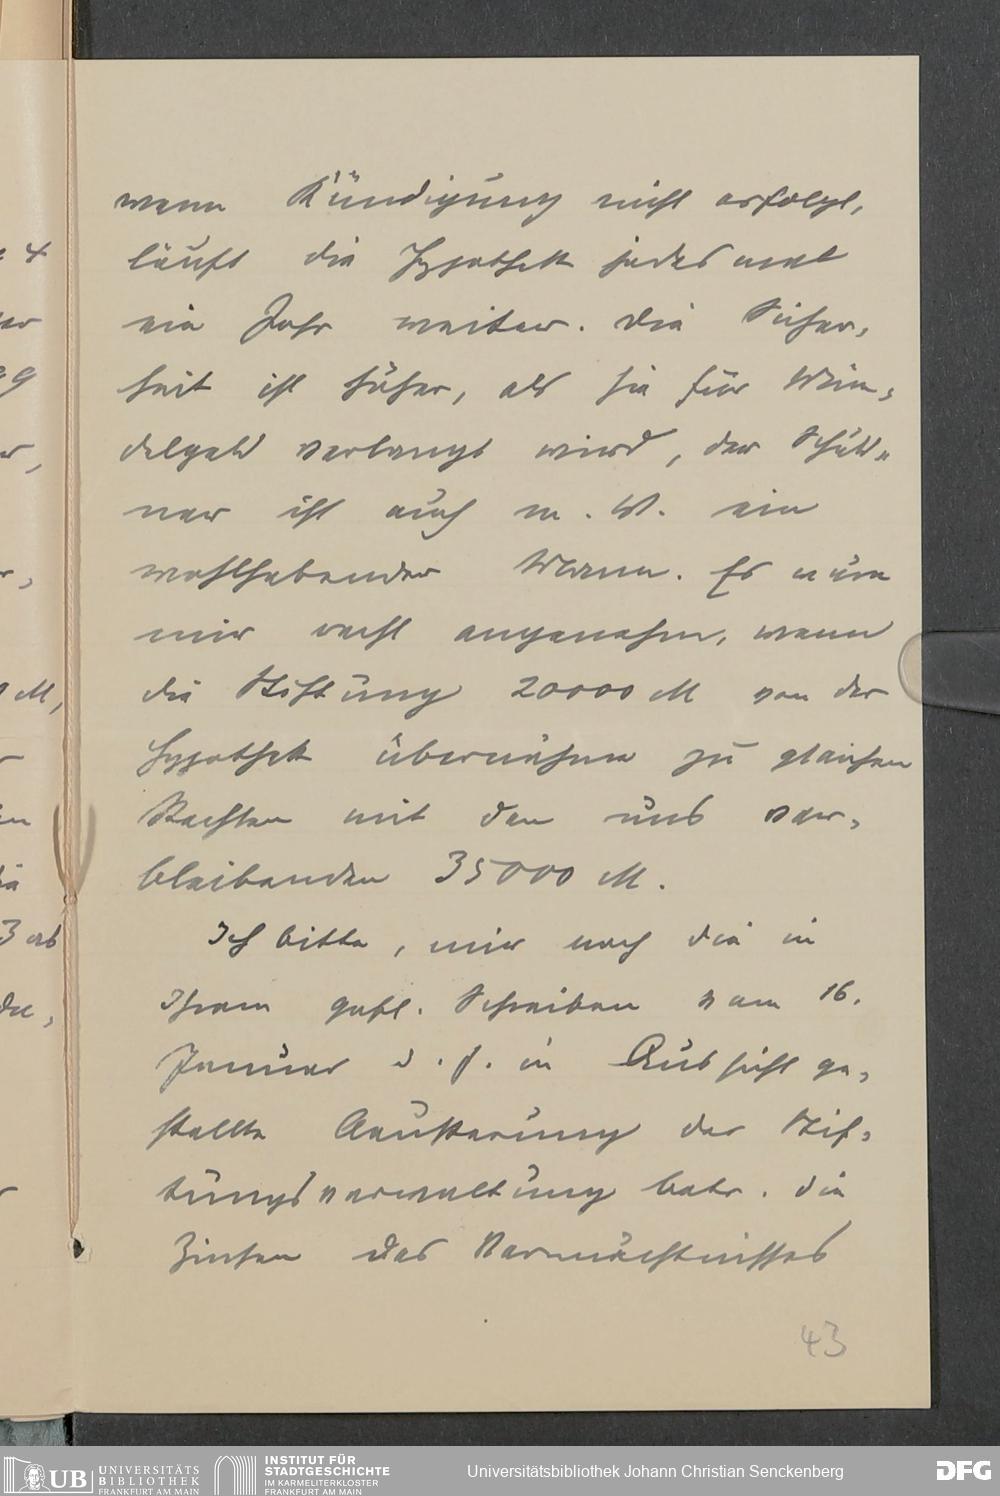 wenn Kündigung nicht erfolgt,
läuft die Hypothek jedes mal
ein Jahr weiter. Die Sicher-
heit ist höher, als sie für Mün-
delgeld verlangt wird, der Schuld-
ner ist auch m. W. ein
wohlhabender Mann. Es wäre
mir recht angenehm, wenn
die Stiftung 20000 M von der
Hypothek übernähme zu gleichen
Rechten mit den uns ver-
bleibenden 35000 M.
Ich bitte, mir noch die in
Ihrem gefl. Schreiben vom 16.
Januar d. J. in Aussicht ge-
stellte Aeusserung der Stif-
tungsverwaltung betr. die
Zinsen des Vermächtnisses
43
UB UNIVERSITÄTS
BIBLIOTHEK
FRANKFURT AM MAIN
INSTITUT FÜR
STADTGESCHICHTE
IM KARMELITERKLOSTER
FRANKFURT AM MAIN
Universitätsbibliothek Johann Christian Senckenberg
DFG